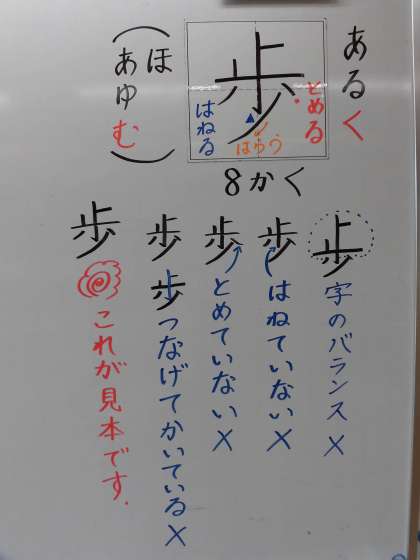 あるく
歩
とめる
はらう
はねる
8かく
(ほ
あゆむ)
歩
字のバランス×
歩
はねていない×
歩
とめていない×
歩
歩
つなげてかいている×
歩
これが見本です.